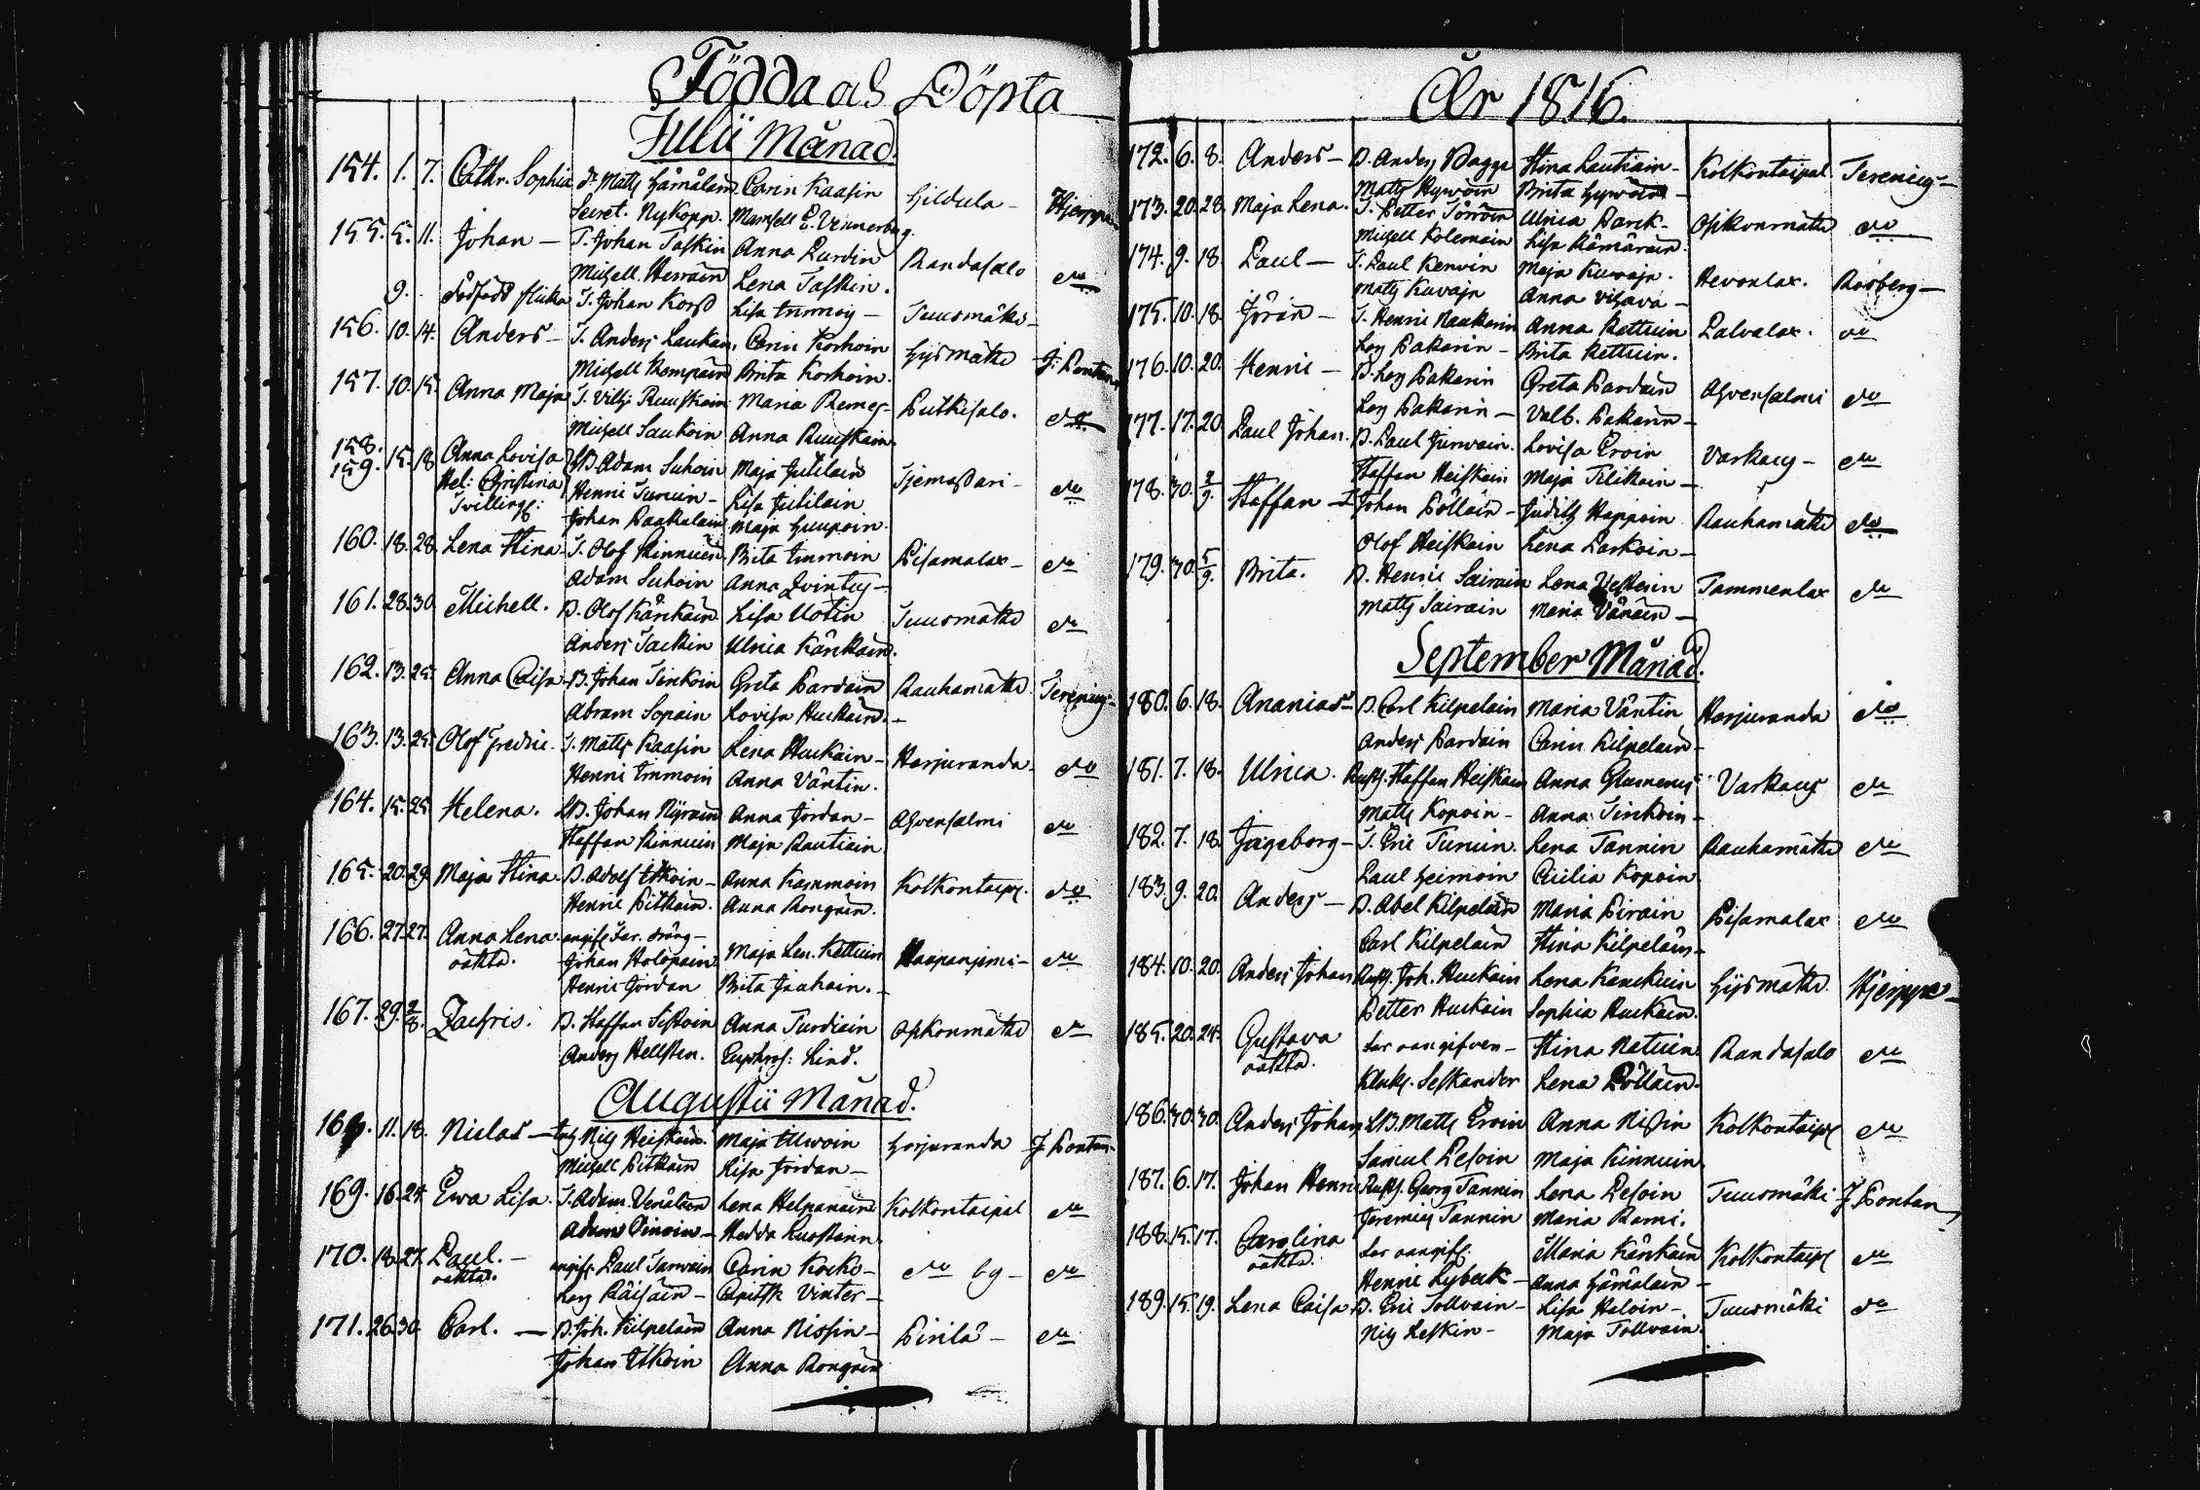 Födda och Döpta
Julii Månad.
154. 1. 7. Cathr. Sophia dr Matts Hämäläin. Carin Kaasin Hildula - Hjerpe
Secret. Nykopp. Mamsell E. Vennerberg.
155. 5. 11. Johan - T. Johan Taskin Anna Purdin Randasalo do
Michell Lena Taskin.
9. dödfödd flicka T. Johan Korss Lisa Immoin - Tuusmäki -
156. 10. 14. Anders - T. Anders Laukan. Carin Korhoin Hijsmäki J. Pontan
Michell Kempäin Brita Korhoin.
157. 10. 15. Anna Maja T. Vilh. Ruuskain Maria Remes - Putkisalo. do
Michell Saukoin Anna Ruuskain.
158. 159. 15. 18. Anna Lovisa Hel: Christina Tvilling: LB. Adam Suhoin Maja Jutilain do
Henric Turuin - Lisa Jutilain
Johan Paakalain Maja Huupoin.
160. 18. 28. Lena Stina - T. Olof Kinnuin Brita Immoin Pisamalax - do
Adam Suhoin Anna Qvintus -
161. 28. 30. Michell. B. Olof Kånkäin Lisa Uotin Tuusmäki do
Anders Taskin Ulrica Kånkäin.
162. 13. 25. Anna Caisa - B. Johan Sinkoin Greta Pardain Rauhamäki Terenius -
Abram Sopain Lovisa Huckain. -
163. 13. 25. Olof Fredric. T. Matts Kaasin Lena Huckain - Harjuranda - do
Henric Immoin Anna Väntin.
164. 15. 25. Helena. LB. Johan Nyrain Anna Jordan - Ahvensalmi do
Staffan Kinnuin Maja Rautiain
165. 20. 29. Maja Stina - B. Adolf Itkoin - Anna Kammoin Kolkontaip. do
Henric Pitkain. Anna Rongain.
166. 27. 27. Anna Lena. oäkta. angif. Far. dräng -
Johan Holopain Maja Len. Kettuin Haapanjemi - do
Henric Jordan Brita Jauhain. -
167. 29. 2/8. Zachris. B. Staffan Anna Turdiain Opkonmäki do
Anders Hellsten. Euphros: Lind.
Augustii Månad.
168. 11. 18. Niclas - Nils Heiskain. Maja Ulwoin Harjuranda J. Pontan.
Michell Pitkain Lisa Jordan -
169. 16. 24. Ewa Lisa. T. Adam Venäläin Lena Helpanain Kolkontaipal do
Adam - Hedda
170. 18. 27. Paul. - oäkta. angif. Paul Tarvain Carin Kocko - do by - do
Lars Räisäin - Capitsk Vinter -
171. 26. 30. Carl. - B. Joh. Kilpeläin Anna Nissin - Pirilä - do
Johan Itkoin Anna Rongain
År 1816.
172. 6. 8. Anders - B. Anders Bagge Stina Lautiain - Kolkontaipal Terenius -
Matts Hyvöin Brita Hyvöin -
173. 20. 28. Maja Lena. T. Petter Törröin Ulrica Parck - Opkonmäki do
Michell Kolemain Lisa Kämäräin.
174. 9. 18. Paul - T. Paul Kenvin Maja Kuvaja. Hevonlax. Rosberg -
Matts Kuvaja Anna Vihava -
175. 10. 18. Jöran - T. Henric Naukarin Anna Kettuin Palvalax. do
Lars Pakarin - Brita Kettuin.
176. 10. 20. Henric - B. Lars Pakarin Greta Pardain Ahvensalmi do
Lars Pakarin - Valb. Pakarin -
177. 17. 20. Paul Johan. B. Paul Jurvain. Lovisa Eroin Varkaus - do
Staffan Heiskain Maja Tilikain -
178. 30. 2/9. Staffan - T. Johan Pöllain - Judith Happoin Rauhamäki do
Olof Heiskain Lena Parkoin -
179. 30. 5/9. Brita. B. Henric Sairain Lena Vesterin Tammenlax do
Matts Sairain Maria Vänain -
September Månad.
180. 6. 18. Ananias - B. Carl Kilpelain Maria Väntin Harjuranda do
Anders Pardain Carin Kilpelain -
181. 7. 18. Ulrica. Rusth. Staffan Heiskain Anna Glumerus - Varkaus do
Matts Kopoin - Anna Sinkoin -
182. 7. 18. Ingeborg - T. Eric Turuin. Lena Tannin Rauhamäki do
Paul Heimoin Cicilia Kopoin
183. 9. 20. Anders - B. Abel Kilpeläin Maria Pirain Pisamalax do
Carl Kilpeläin Stina Kilpeläin -
184. 10. 20. Anders Johan Rusth. Joh. Huckain Lena Kanckuin Hijsmäki Hjerppe -
Petter Huckain Sophia Huckain.
185. 20. 24. Gustava oäkta. far oangifven - Stina Natuin. Randasalo do
Klock. Leskander Lena Pöllain -
186. 30. 30. Anders Johan LB. Matts Eroin Anna Nissin Kolkontaip. do
Samuel Pesoin Maja Kinnuin
187. 6. 17. Johan Henric Rusth. Georg Tannin Lena Pesoin Tuusmäki J. Pontan
Jeremias Tannin Maria Rami.
188. 15. 17. Carolina oäkta. far oangif. Maria Kånkain Kolkontaip. do
Henric Lybeck - Anna Hämäläin -
189. 15. 19. Lena Caisa B. Eric Tollvain - Lisa Haloin - Tuusmäki do
Nils Leskin - Maja Tollvain.